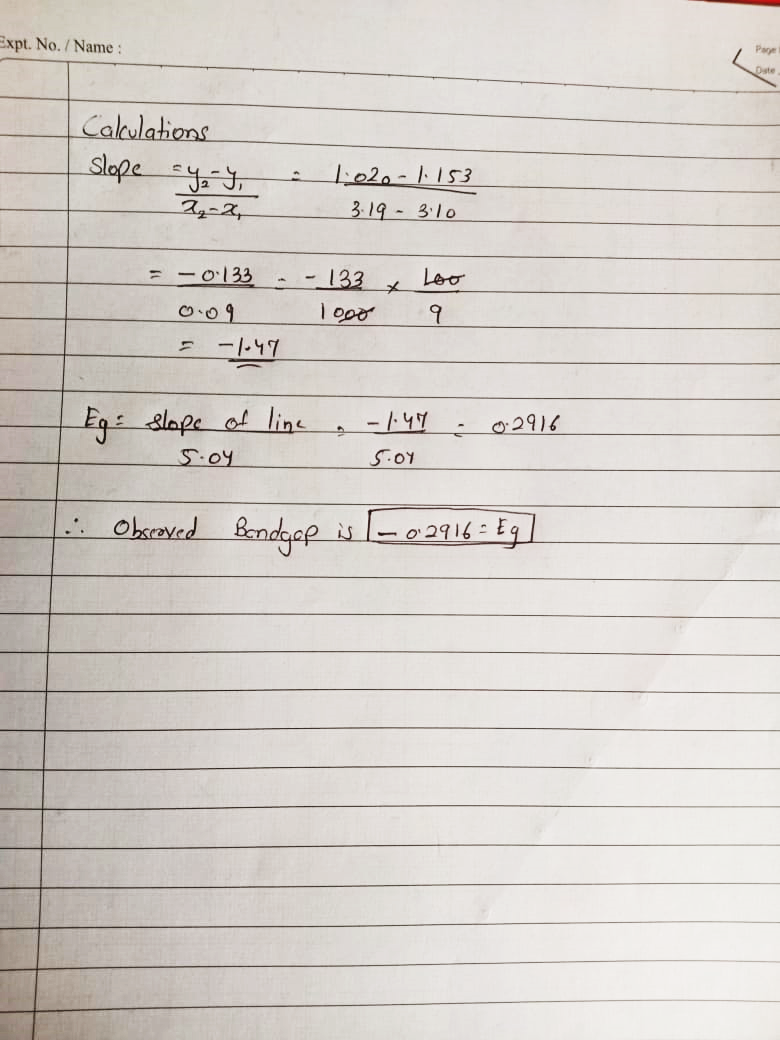 Expt. No. / Name :
Page
Date
Calculations
Slope = y₂-y₁ / x₂-x₁ = 1.020 - 1.153 / 3.19 - 3.10
= -0.133 / 0.09 = -133 / 1000 × 100 / 9
= -1.47
Eg = slope of line / 5.04 = -1.47 / 5.04 = 0.2916
∴ Observed Bandgap is - 0.2916 = Eg